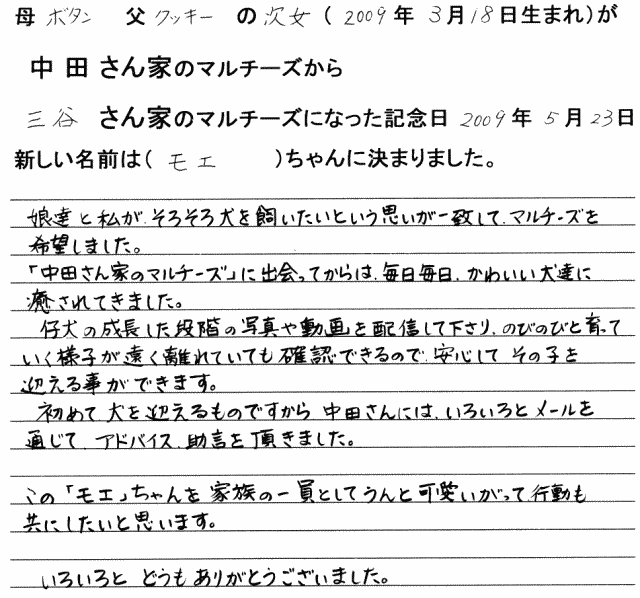 母 ボタン 父 クッキー の 次女 ( 2009 年 3 月 18 日生まれ)が
中田さん家のマルチーズから
三谷 さん家のマルチーズになった記念日 2009 年 5 月 23 日
新しい名前は( モエ )ちゃんに決まりました。
娘達と私が、そろそろ犬を飼いたいという思いが一致して、マルチーズを
希望しました。
「中田さん家のマルチーズ」に出会ってからは、毎日毎日、かわいい犬達に
癒されてきました。
仔犬の成長した段階の写真や動画を配信して下さり、のびのびと育って
いく様子が遠く離れていても確認できるので、安心して その子を
迎える事ができます。
初めて犬を迎えるものですから 中田さんには、いろいろとメールを
通じて、アドバイス、助言を頂きました。
この「モエ」ちゃんを家族の一員としてうんと可愛いがって行動も
共にしたいと思います。
いろいろと どうもありがとうございました。